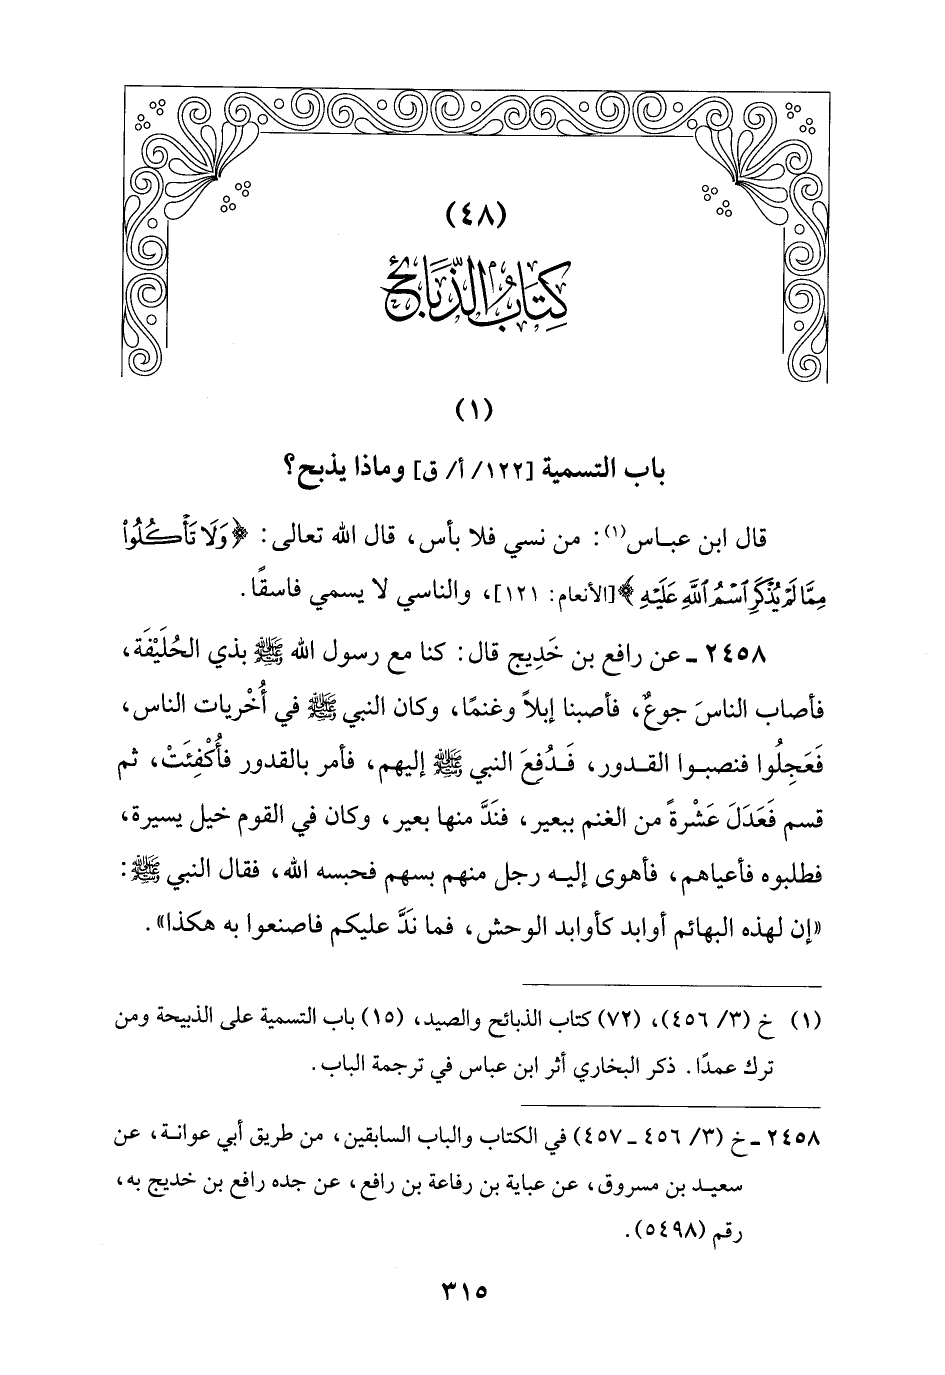 (٤٨)
كِتَابُ الذَّبَائِحِ
(١)
باب التسمية [١٢٢/ أ/ ق] وماذا يذبح؟
قال ابن عباس(١): من نسي فلا بأس، قال الله تعالى: ﴿وَلَا تَأْكُلُوا۟
مِمَّا لَمْ يُذْكَرِ ٱسْمُ ٱللَّهِ عَلَيْهِ﴾ [الأنعام: ١٢١]، والناسي لا يسمي فاسقًا.
٢٤٥٨ ـ عن رافع بن خَدِيج قال: كنا مع رسول الله ﷺ بذي الحُلَيْفَة،
فأصاب الناسَ جوعٌ، فأصبنا إبلاً وغنمًا، وكان النبي ﷺ في أُخْريات الناس،
فَعَجِلُوا فنصبوا القدور، فَدُفِعَ النبي ﷺ إليهم، فأمر بالقدور فأُكْفِئَتْ، ثم
قسم فَعَدَلَ عَشْرةً من الغنم ببعير، فنَدَّ منها بعير، وكان في القوم خيل يسيرة،
فطلبوه فأعياهم، فأهوى إليه رجل منهم بسهم فحبسه الله، فقال النبي ﷺ:
«إن لهذه البهائم أوابد كأوابد الوحش، فما نَدَّ عليكم فاصنعوا به هكذا».
(١) خ (٣/ ٤٥٦)، (٧٢) كتاب الذبائح والصيد، (١٥) باب التسمية على الذبيحة ومن
ترك عمدًا. ذكر البخاري أثر ابن عباس في ترجمة الباب.
٢٤٥٨ ـ خ (٣/ ٤٥٦ ـ ٤٥٧) في الكتاب والباب السابقين، من طريق أبي عوانة، عن
سعيد بن مسروق، عن عباية بن رفاعة بن رافع، عن جده رافع بن خديج به،
رقم (٥٤٩٨).
٣١٥